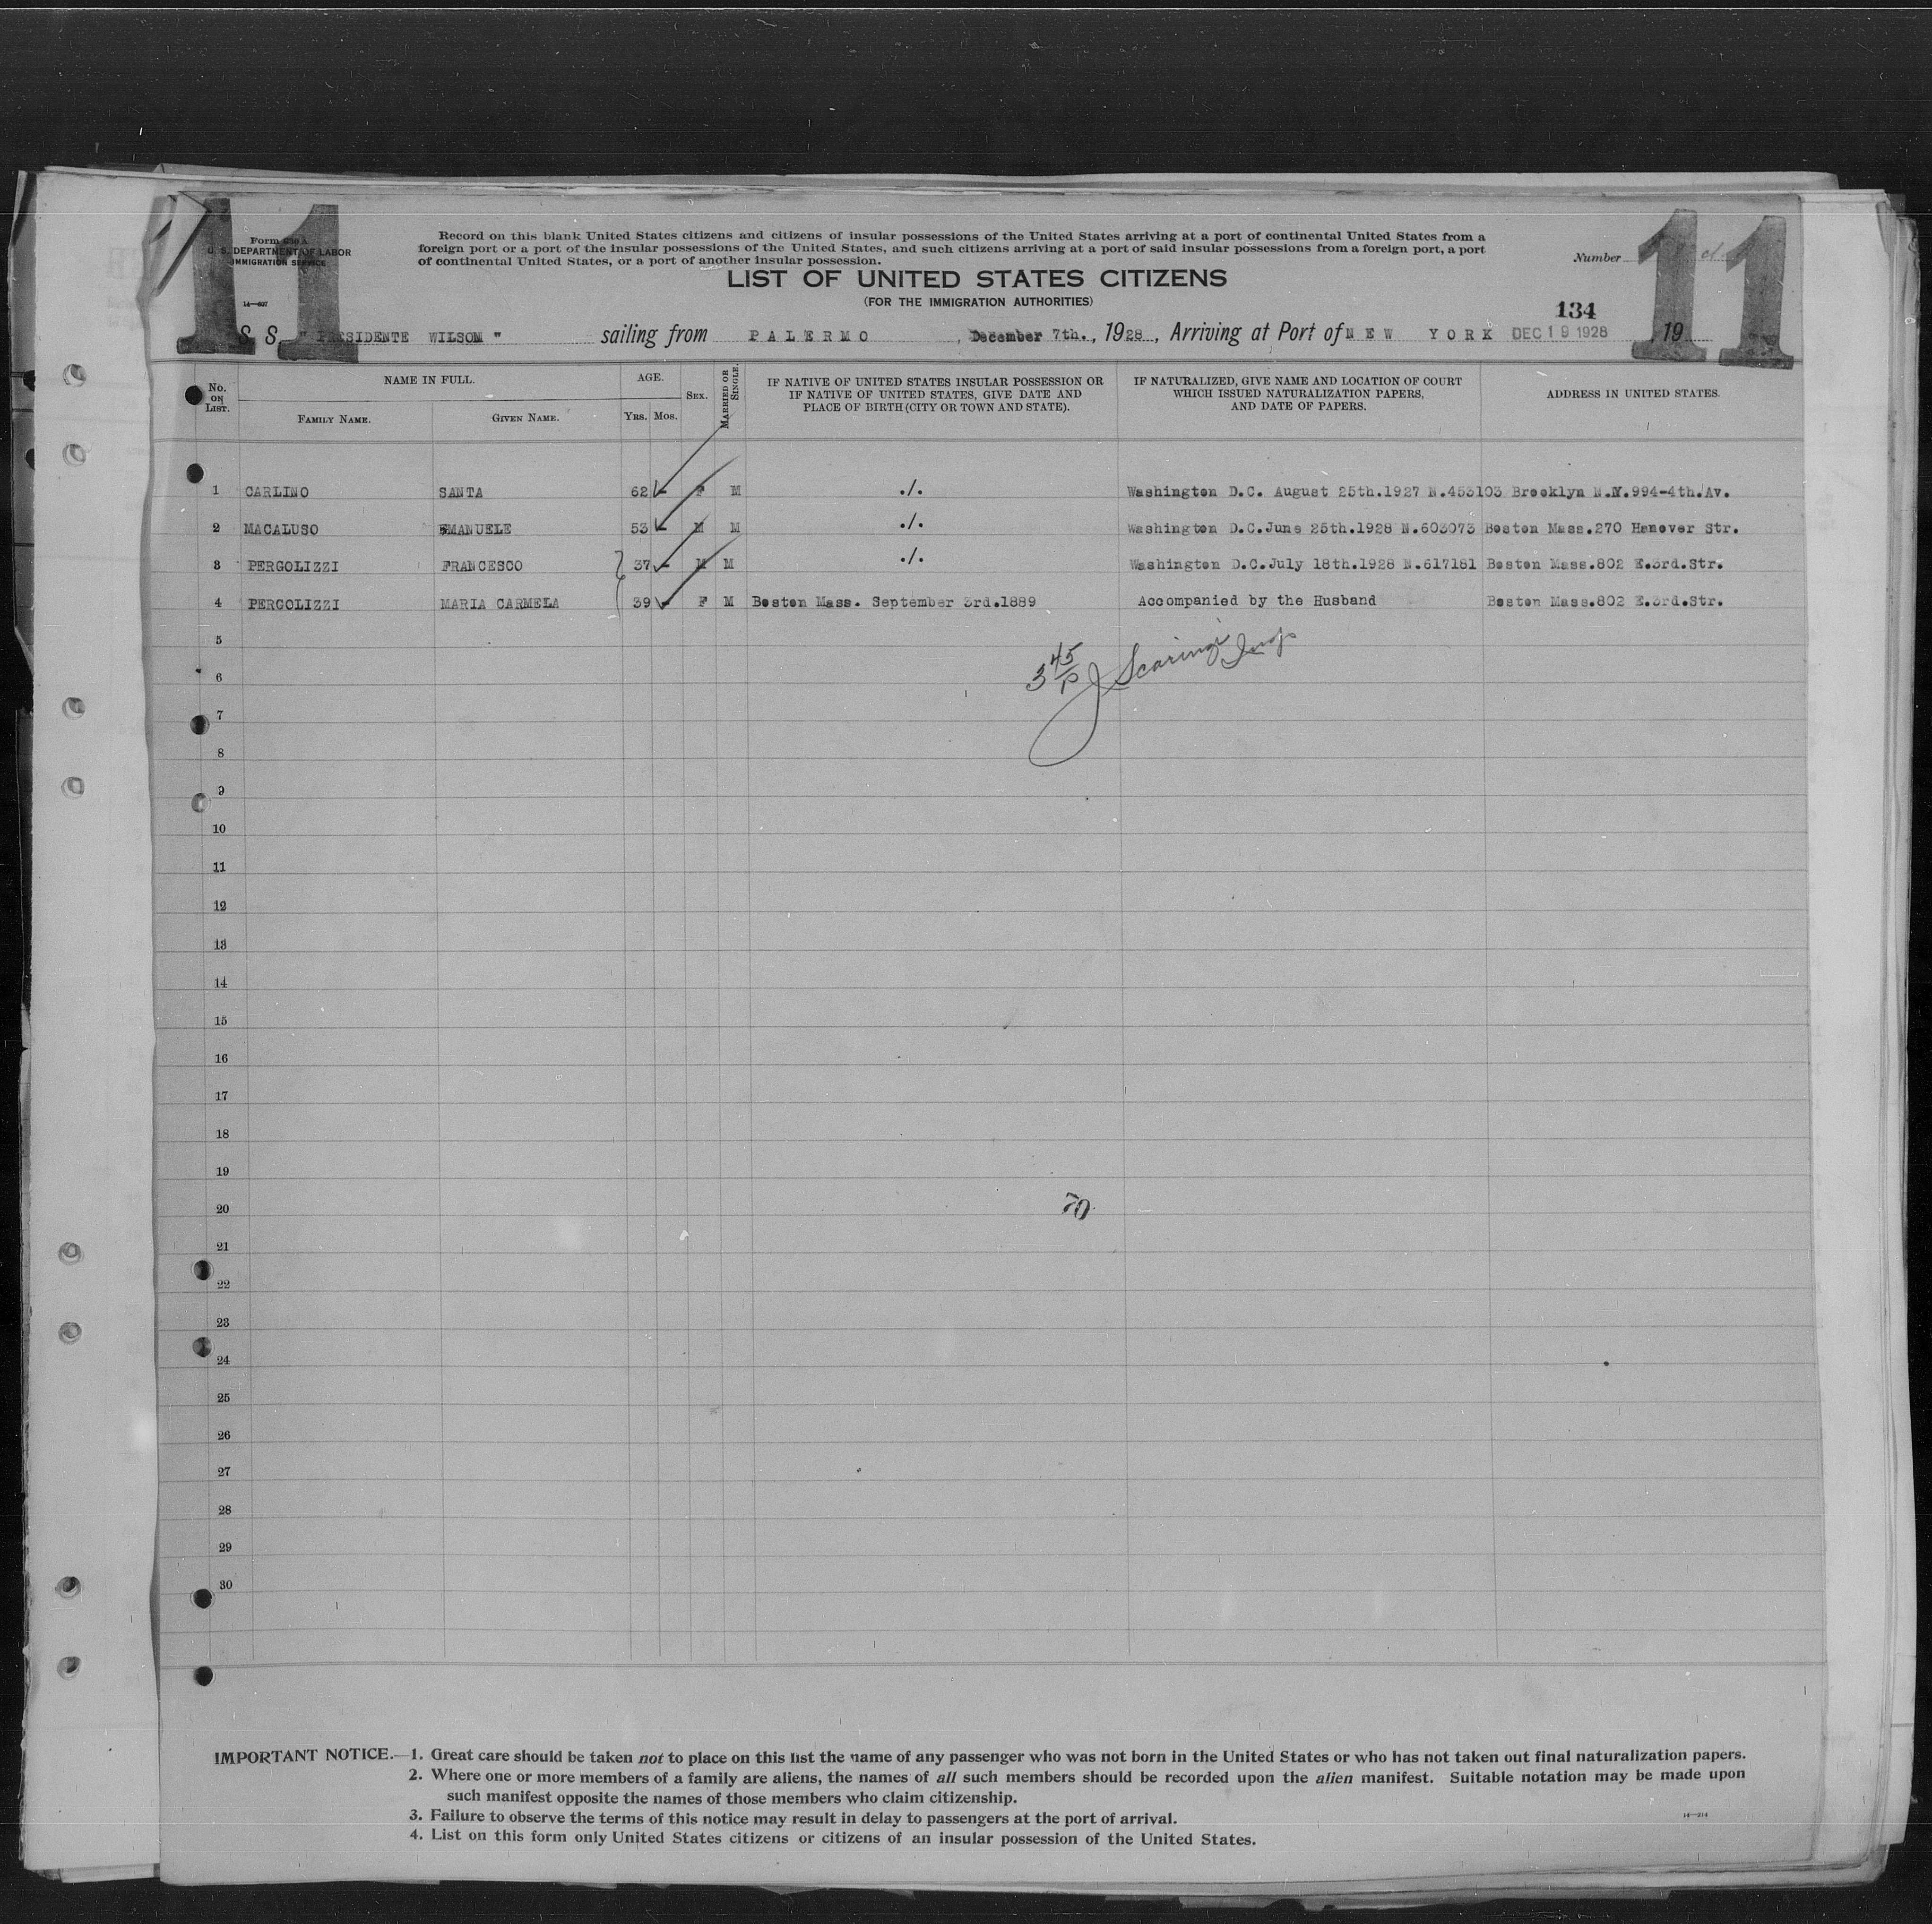 11
11
Form 630 A
U. S. DEPARTMENT OF LABOR
IMMIGRATION SERVICE
14—607
Record on this blank United States citizens and citizens of insular possessions of the United States arriving at a port of continental United States from a
foreign port or a port of the insular possessions of the United States, and such citizens arriving at a port of said insular possessions from a foreign port, a port
of continental United States, or a port of another insular possession.
Number
LIST OF UNITED STATES CITIZENS
(FOR THE IMMIGRATION AUTHORITIES)
134
S. S. " PRESIDENTE WILSOM " sailing from PALERMO, December 7th., 1928, Arriving at Port of NEW YORK DEC 19 1928, 19
No. ON LIST. NAME IN FULL. AGE. SEX. MARRIED OR SINGLE. IF NATIVE OF UNITED STATES INSULAR POSSESSION OR IF NATIVE OF UNITED STATES, GIVE DATE AND PLACE OF BIRTH (CITY OR TOWN AND STATE). IF NATURALIZED, GIVE NAME AND LOCATION OF COURT WHICH ISSUED NATURALIZATION PAPERS, AND DATE OF PAPERS. ADDRESS IN UNITED STATES.
FAMILY NAME. GIVEN NAME. YRS. MOS.
1 CARLINO SANTA 62 - F M ./. Washington D.C. August 25th.1927 N.453103 Brooklyn N.Y.994-4th.Av.
2 MACALUSO EMANUELE 53 - M M ./. Washington D.C.June 25th.1928 N.603073 Boston Mass.270 Hanover Str.
3 PERGOLIZZI FRANCESCO 37 - M M ./. Washington D.C.July 18th.1928 N.617181 Boston Mass.802 E.3rd.Str.
4 PERGOLIZZI MARIA CARMELA 39 - F M Boston Mass. September 3rd.1889 Accompanied by the Husband Boston Mass.802 E.3rd.Str.
5
3 45/P J Scaringi Insp
6
7
8
9
10
11
12
13
14
15
16
17
18
19
20 70
21
22
23
24
25
26
27
28
29
30
IMPORTANT NOTICE.—1. Great care should be taken not to place on this list the name of any passenger who was not born in the United States or who has not taken out final naturalization papers.
2. Where one or more members of a family are aliens, the names of all such members should be recorded upon the alien manifest. Suitable notation may be made upon
such manifest opposite the names of those members who claim citizenship.
3. Failure to observe the terms of this notice may result in delay to passengers at the port of arrival.
14—214
4. List on this form only United States citizens or citizens of an insular possession of the United States.